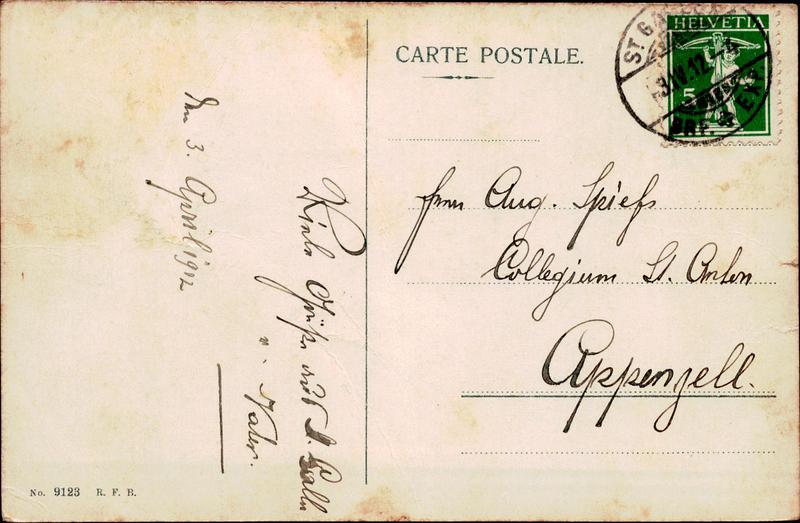 CARTE POSTALE.
HELVETIA
5
ST. GALLEN
3.IV.12. - 4
BRF. EXP.
Den 3. April 1912
Viele Grüße aus St. Gallen
v. Vater.
Herrn Aug. Spieß
Collegium St. Anton
Appenzell.
No. 9123 R. F. B.